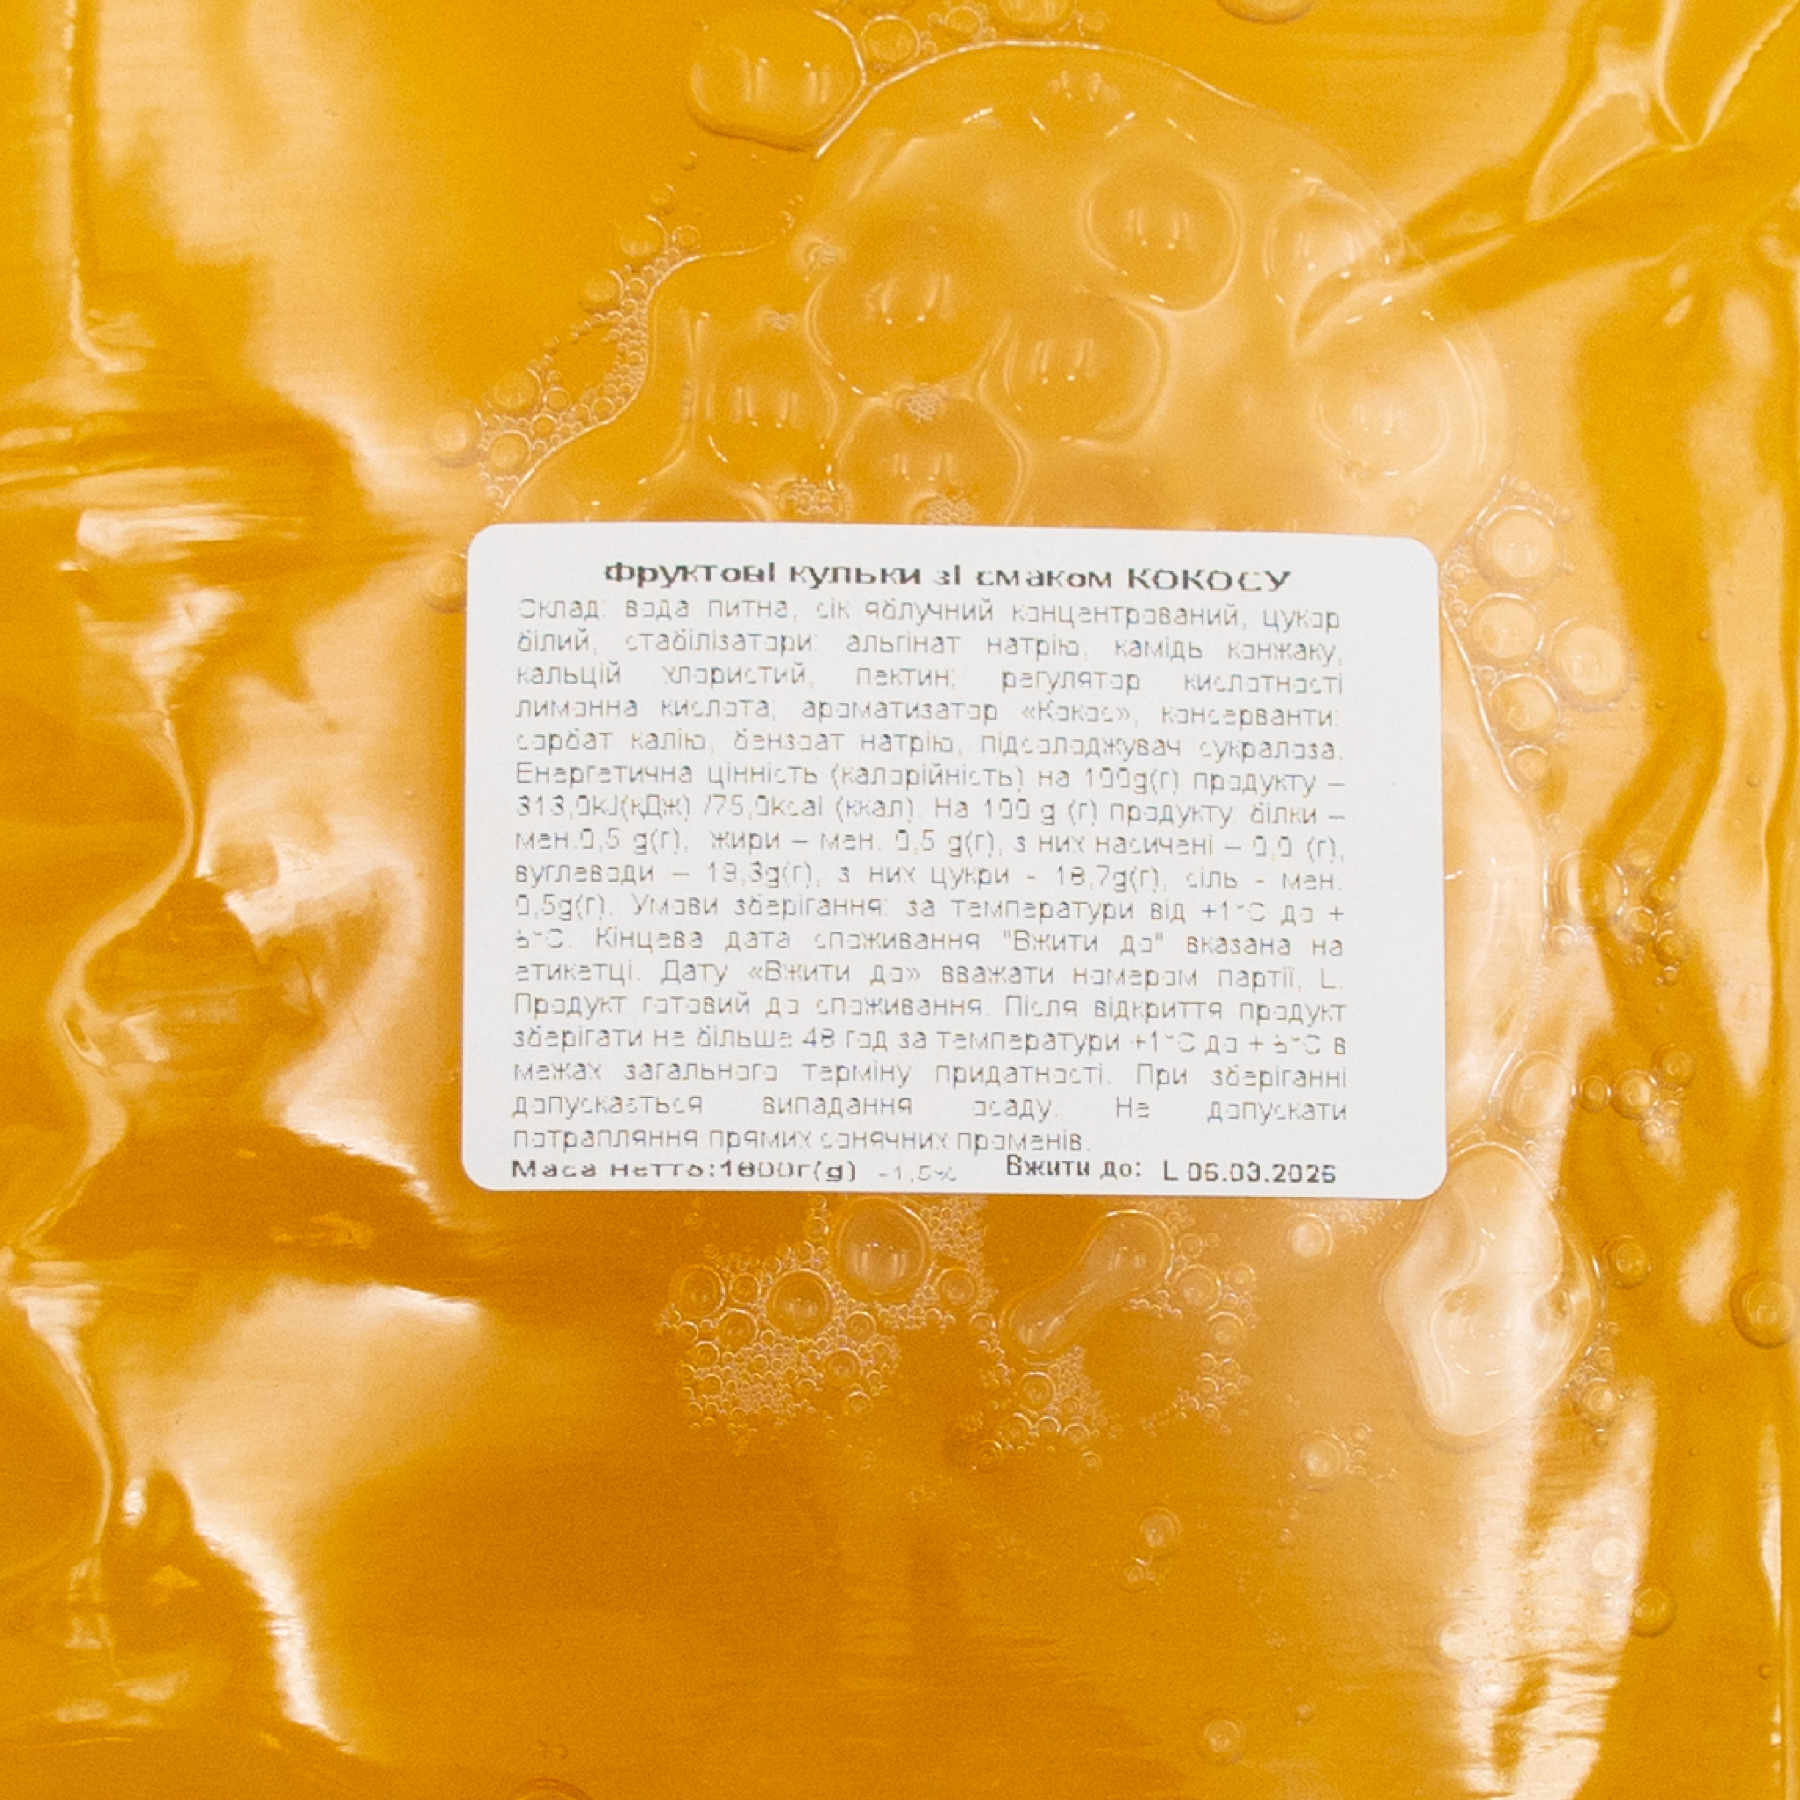 Фруктові кульки зі смаком КОКОСУ
Склад: вода питна, сік яблучний концентрований, цукор
білий, стабілізатори: альгінат натрію, камідь конжаку,
кальцій хлористий, пектин; регулятор кислотності
лимонна кислота; ароматизатор «Кокос», консерванти:
сорбат калію, бензоат натрію, підсолоджувач сукралоза.
Енергетична цінність (калорійність) на 100g(г) продукту –
313,0kJ(кДж) /75,0kcal (ккал). На 100 g (г) продукту: білки –
мен.0,5 g(г), жири – мен. 0,5 g(г), з них насичені – 0,0 (г),
вуглеводи – 19,3g(г), з них цукри - 18,7g(г), сіль - мен.
0,5g(г). Умови зберігання: за температури від +1°С до +
°С. Кінцева дата споживання "Вжити до" вказана на
етикетці. Дату «Вжити до» вважати номером партії, L.
Продукт готовий до споживання. Після відкриття продукт
зберігати не більше 48 год за температури +1°С до + °С в
межах загального терміну придатності. При зберіганні
допускається випадання осаду. Не допускати
потрапляння прямих сонячних променів.
Маса нетто:1800г(g) -1,5% Вжити до: L